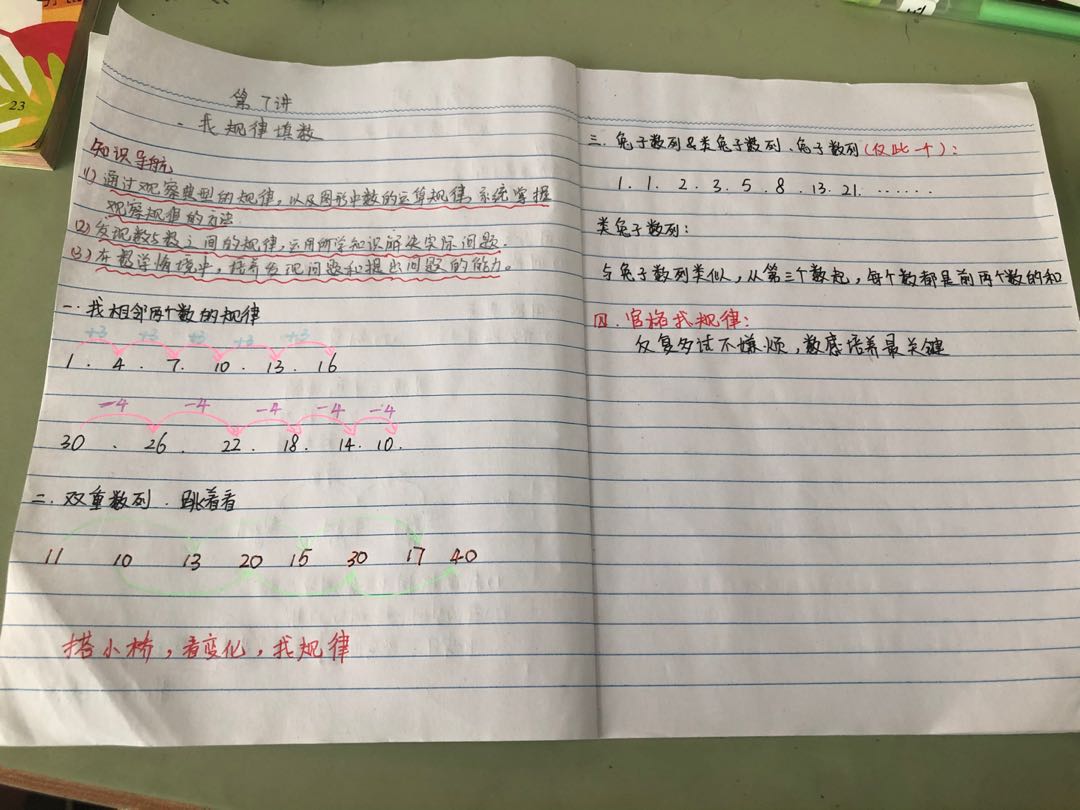 23
第7讲
找规律填数
知识导航
(1) 通过观察典型的规律，以及图形中数的运算规律，系统掌握
观察规律的方法.
(2) 发现数与数之间的规律，运用所学知识解决实际问题.
(3) 在数学情境中，培养发现问题和提出问题的能力。
一. 找相邻两个数的规律
+3 +3 +3 +3 +3
1. 4. 7. 10. 13. 16
-4 -4 -4 -4 -4
30. 26. 22. 18. 14. 10.
二. 双重数列. 跳着看
11 10 13 20 15 30 17 40
搭小桥，看变化，找规律
三. 兔子数列&类兔子数列. 兔子数列(仅此一个)：
1. 1. 2. 3. 5. 8. 13. 21. ……
类兔子数列：
与兔子数列类似，从第三个数起，每个数都是前两个数的和
四. 宫格找规律：
反复多试不嫌烦，数感培养最关键